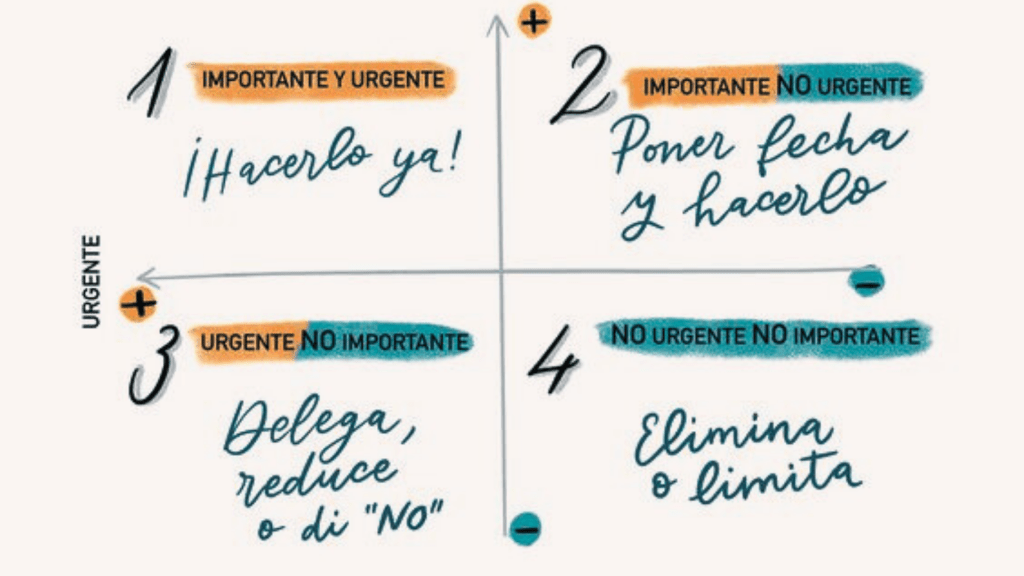 +
1
IMPORTANTE Y URGENTE
¡Hacerlo ya!
2
IMPORTANTE NO URGENTE
Poner fecha
y hacerlo
URGENTE
+
-
3
URGENTE NO IMPORTANTE
Delega,
reduce
o di "NO"
4
NO URGENTE NO IMPORTANTE
Elimina
o limita
-